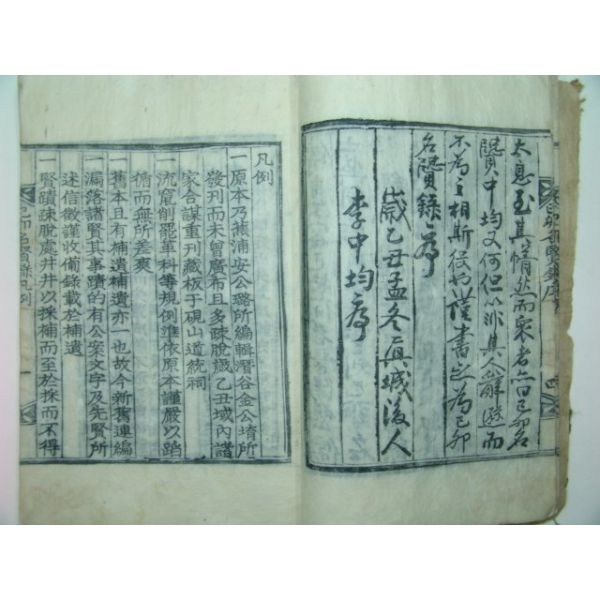 太息至其惰然而衰者六曰己卯名
賢中均又何但以非其辭遊而
不為之相斯役也謹書之為己卯
名賢錄序
歲乙丑孟冬眞城後人
李中均序
凡例
一原本乃蕉浦安公璐所編輯潛谷金公堉所
發刊而未曾廣布且多疎脫歲乙丑域內諸
家合謀重刊藏板于硯山道統祠
一流竄削罷革科等規例準依原本謹嚴以蹈
循而無所差爽
一舊本且有補遺補遺亦一也故今新舊連編
一漏落諸賢其事蹟的有公案文字及先賢所
迷信徵謹收備錄載於補遺
一賢蹟疎脫處井井以採補而至於採而不得
己卯名賢錄凡例
一